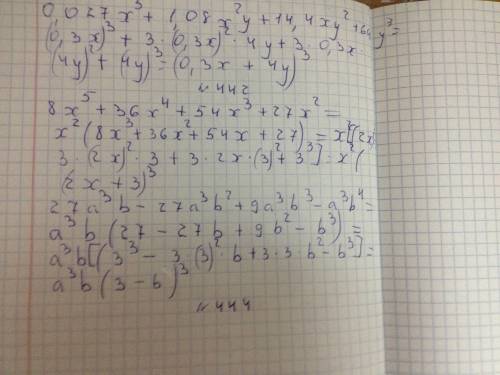 0,027x³ + 1,08x²y + 14,4xy² + 64y³ =
(0,3x)³ + 3·(0,3x)²·4y + 3·0,3x·
(4y)² + (4y)³ = (0,3x + 4y)³
№ 442
8x⁵ + 36x⁴ + 54x³ + 27x² =
x²(8x³ + 36x² + 54x + 27) = x²[(2x)³
3·(2x)²·3 + 3·2x·(3)² + 3³] = x²(
(2x + 3)³
27a³b - 27a³b² + 9a³b³ - a³b⁴ =
a³b(27 - 27b + 9b² - b³) =
a³b[(3³ - 3·(3)²·b + 3·3·b² - b³] =
a³b(3 - b)³
№ 444